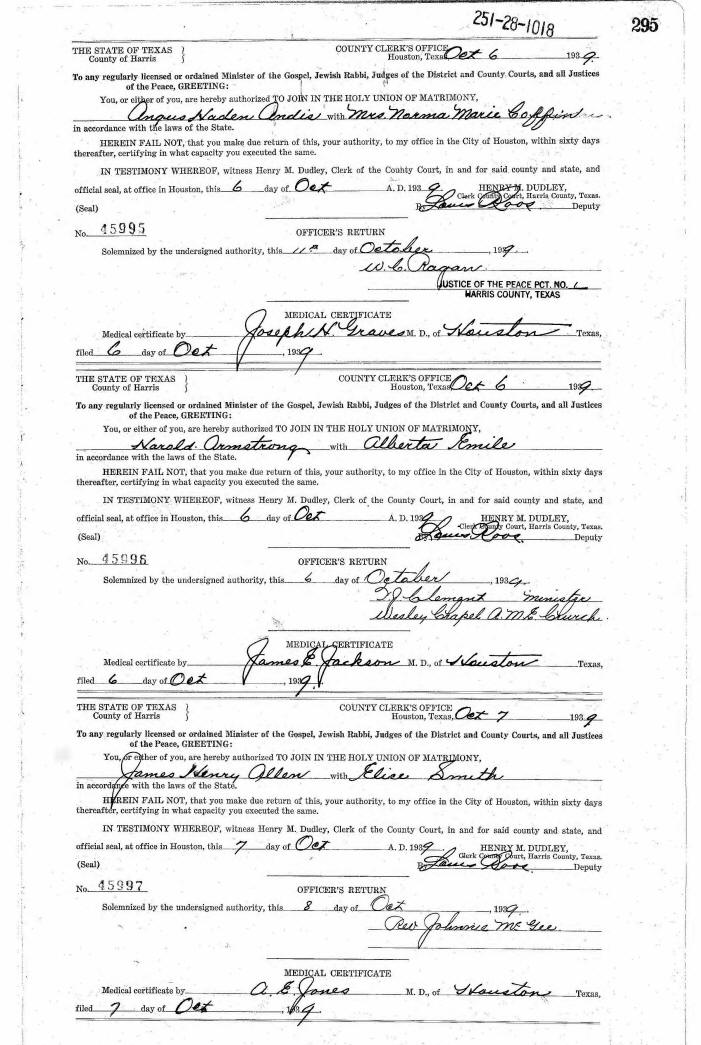 251-28-1018 295
THE STATE OF TEXAS } COUNTY CLERK'S OFFICE
County of Harris } Houston, Texas Oct 6 1939
To any regularly licensed or ordained Minister of the Gospel, Jewish Rabbi, Judges of the District and County Courts, and all Justices
of the Peace, GREETING:
You, or either of you, are hereby authorized TO JOIN IN THE HOLY UNION OF MATRIMONY,
Angus Haden Andis with Mrs. Norma Marie Coffin
in accordance with the laws of the State.
HEREIN FAIL NOT, that you make due return of this, your authority, to my office in the City of Houston, within sixty days
thereafter, certifying in what capacity you executed the same.
IN TESTIMONY WHEREOF, witness Henry M. Dudley, Clerk of the County Court, in and for said county and state, and
official seal, at office in Houston, this 6 day of Oct A. D. 1939 HENRY M. DUDLEY,
Clerk County Court, Harris County, Texas.
(Seal) By Louis Roos Deputy
No. 45995 OFFICER'S RETURN
Solemnized by the undersigned authority, this 11th day of October, 1939.
W. C. Ragan
JUSTICE OF THE PEACE PCT. NO. 1
HARRIS COUNTY, TEXAS
MEDICAL CERTIFICATE
Medical certificate by Joseph H. Graves M. D., of Houston Texas,
filed 6 day of Oct, 1939.
THE STATE OF TEXAS } COUNTY CLERK'S OFFICE
County of Harris } Houston, Texas Oct 6 1939
To any regularly licensed or ordained Minister of the Gospel, Jewish Rabbi, Judges of the District and County Courts, and all Justices
of the Peace, GREETING:
You, or either of you, are hereby authorized TO JOIN IN THE HOLY UNION OF MATRIMONY,
Harold Armstrong with Alberta Emile
in accordance with the laws of the State.
HEREIN FAIL NOT, that you make due return of this, your authority, to my office in the City of Houston, within sixty days
thereafter, certifying in what capacity you executed the same.
IN TESTIMONY WHEREOF, witness Henry M. Dudley, Clerk of the County Court, in and for said county and state, and
official seal, at office in Houston, this 6 day of Oct A. D. 1939 HENRY M. DUDLEY,
Clerk County Court, Harris County, Texas.
(Seal) By Louis Roos Deputy
No. 45996 OFFICER'S RETURN
Solemnized by the undersigned authority, this 6 day of October, 1939.
T. J. Clemont minister
Wesley Chapel A.M.E. Church.
MEDICAL CERTIFICATE
Medical certificate by James E. Jackson M. D., of Houston Texas,
filed 6 day of Oct, 1939.
THE STATE OF TEXAS } COUNTY CLERK'S OFFICE
County of Harris } Houston, Texas, Oct 7 1939
To any regularly licensed or ordained Minister of the Gospel, Jewish Rabbi, Judges of the District and County Courts, and all Justices
of the Peace, GREETING:
You, or either of you, are hereby authorized TO JOIN IN THE HOLY UNION OF MATRIMONY,
James Henry Allen with Elice Smith
in accordance with the laws of the State.
HEREIN FAIL NOT, that you make due return of this, your authority, to my office in the City of Houston, within sixty days
thereafter, certifying in what capacity you executed the same.
IN TESTIMONY WHEREOF, witness Henry M. Dudley, Clerk of the County Court, in and for said county and state, and
official seal, at office in Houston, this 7 day of Oct A. D. 1939 HENRY M. DUDLEY,
Clerk County Court, Harris County, Texas.
(Seal) By Louis Roos Deputy
No. 45997 OFFICER'S RETURN
Solemnized by the undersigned authority, this 8 day of Oct, 1939.
Rev Johnnie McGee
MEDICAL CERTIFICATE
Medical certificate by A. E. Jones M. D., of Houston Texas,
filed 7 day of Oct, 1939.